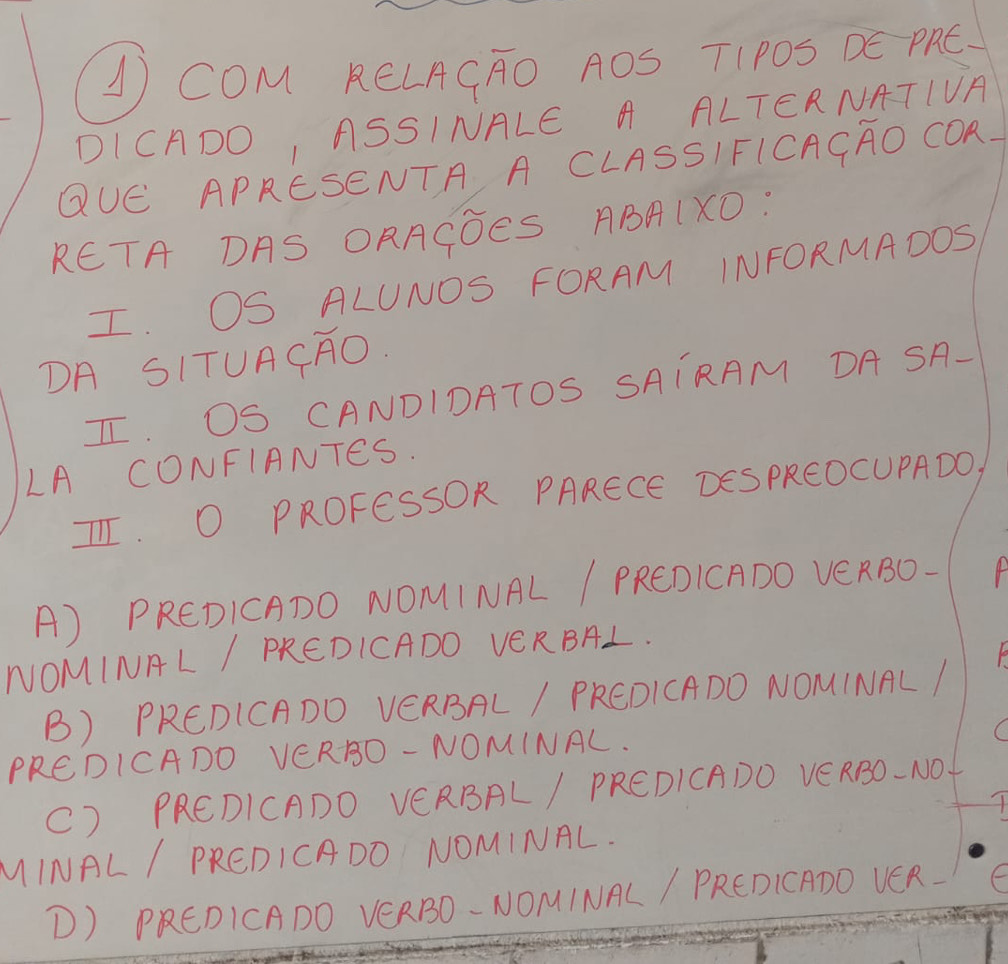 ① COM RELAÇÃO AOS TIPOS DE PRE-
DICADO, ASSINALE A ALTERNATIVA
QUE APRESENTA A CLASSIFICAÇÃO COR-
RETA DAS ORAÇÕES ABAIXO:
I. OS ALUNOS FORAM INFORMADOS
DA SITUAÇÃO.
II. OS CANDIDATOS SAÍRAM DA SA-
LA CONFIANTES.
III. O PROFESSOR PARECE DESPREOCUPADO.
A) PREDICADO NOMINAL / PREDICADO VERBO-
NOMINAL / PREDICADO VERBAL.
B) PREDICADO VERBAL / PREDICADO NOMINAL /
PREDICADO VERBO-NOMINAL.
C) PREDICADO VERBAL / PREDICADO VERBO-NO-
MINAL / PREDICADO NOMINAL.
D) PREDICADO VERBO-NOMINAL / PREDICADO VER-